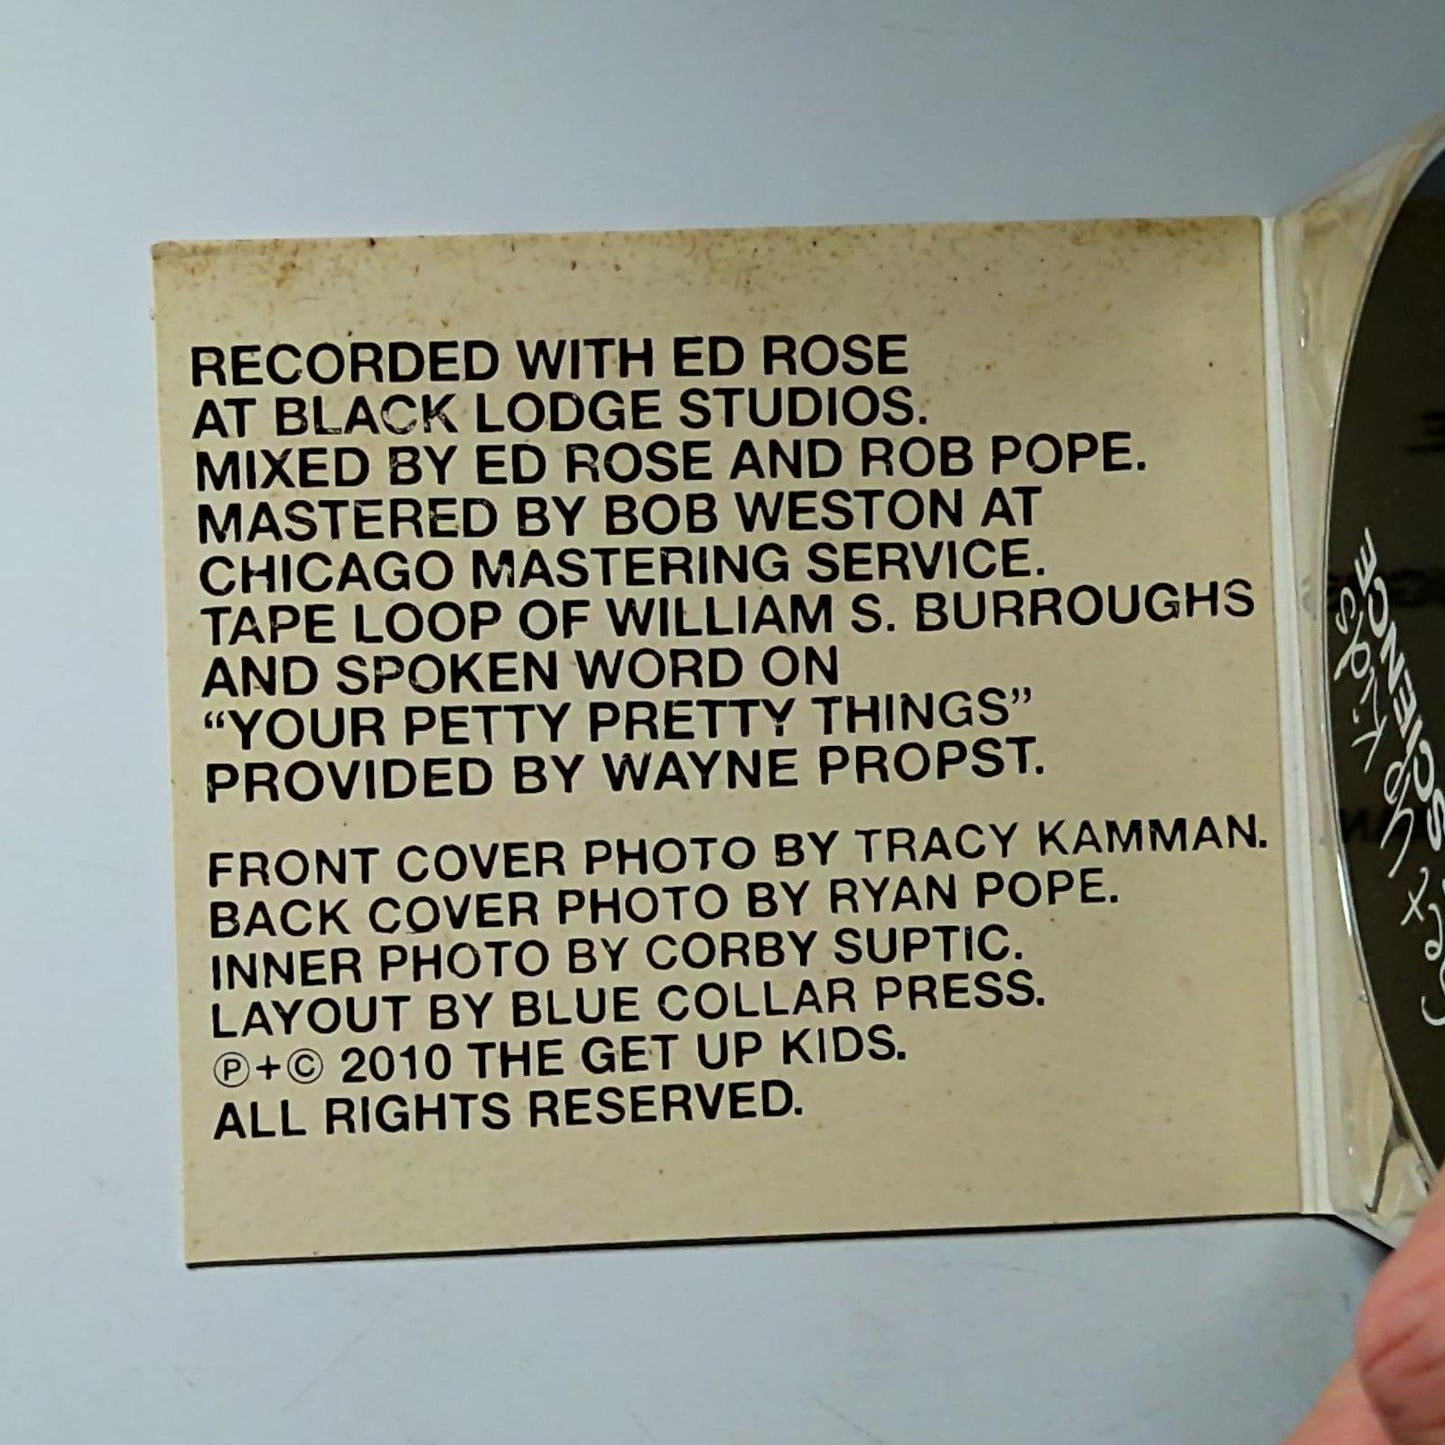 RECORDED WITH ED ROSE
AT BLACK LODGE STUDIOS.
MIXED BY ED ROSE AND ROB POPE.
MASTERED BY BOB WESTON AT
CHICAGO MASTERING SERVICE.
TAPE LOOP OF WILLIAM S. BURROUGHS
AND SPOKEN WORD ON
“YOUR PETTY PRETTY THINGS”
PROVIDED BY WAYNE PROPST.
FRONT COVER PHOTO BY TRACY KAMMAN.
BACK COVER PHOTO BY RYAN POPE.
INNER PHOTO BY CORBY SUPTIC.
LAYOUT BY BLUE COLLAR PRESS.
℗+© 2010 THE GET UP KIDS.
ALL RIGHTS RESERVED.
SCIENCE
Get Up Kids